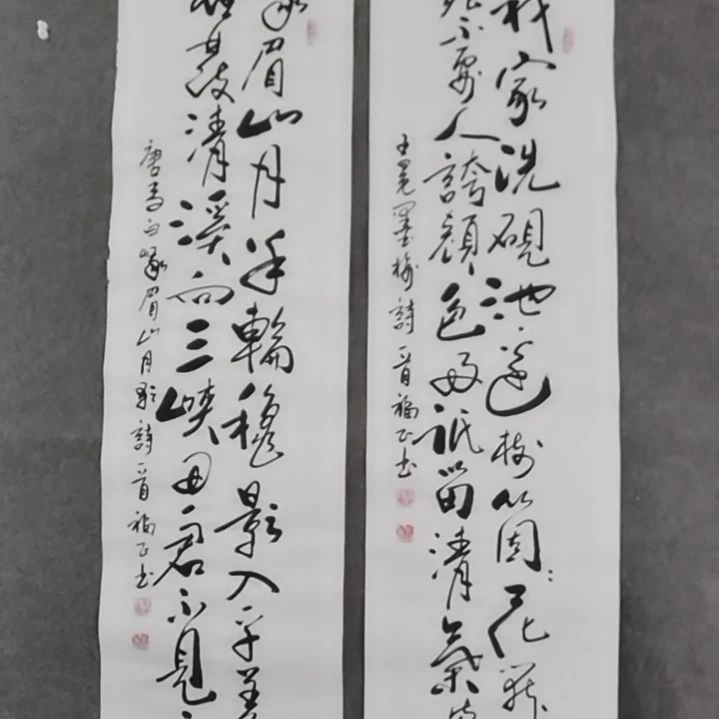 我家洗硯池邊樹個〻花開
痕不要人誇顏色好祇留清氣滿
王冕墨梅詩 晋福正书
峩眉山月半輪穐影入平羌
夜發清溪向三峽思君不見
唐李白峩眉山月歌詩 晋福正书